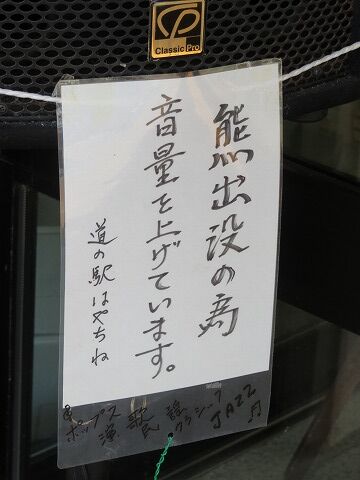 CP
Classic Pro
熊出没の為
音量を上げています。
道の駅はやちね
ポップス
演歌
民謡
クラシック
JAZZ